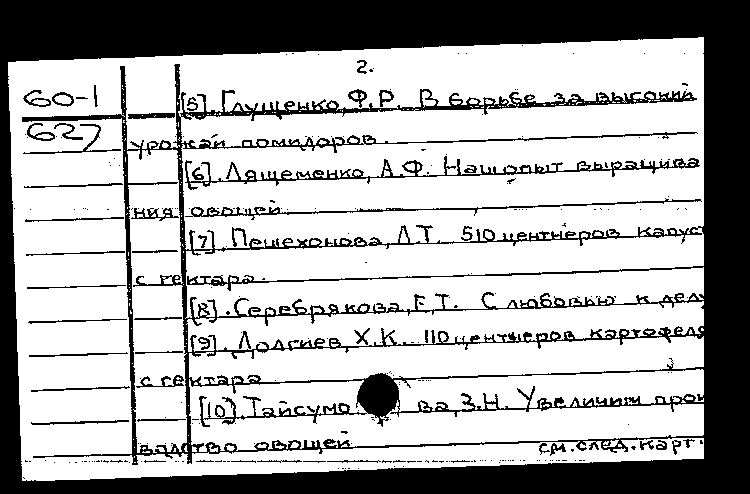 2.
60-1 [5]. Глущенко, Ф.Р. В борьбе за высокий
627 урожай помидоров.
[6]. Лящеменко, А.Ф. Наш опыт выращива
ния овощей
[7]. Пешехонова, Л.Т. 510 центнеров капус
с гектара.
[8]. Серебрякова, Е.Т. С любовью к делу
[9]. Долгиев, Х.К. 110 центнеров картофеля
с гектара
[10]. Тайсумо ва, З.Н. Увеличим прои
водство овощей
см. след. карт.